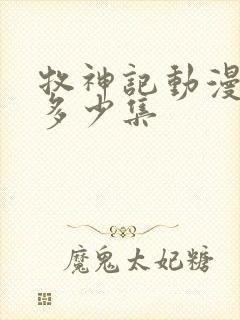 牧神記動漫
多少集
魔鬼太妃糖